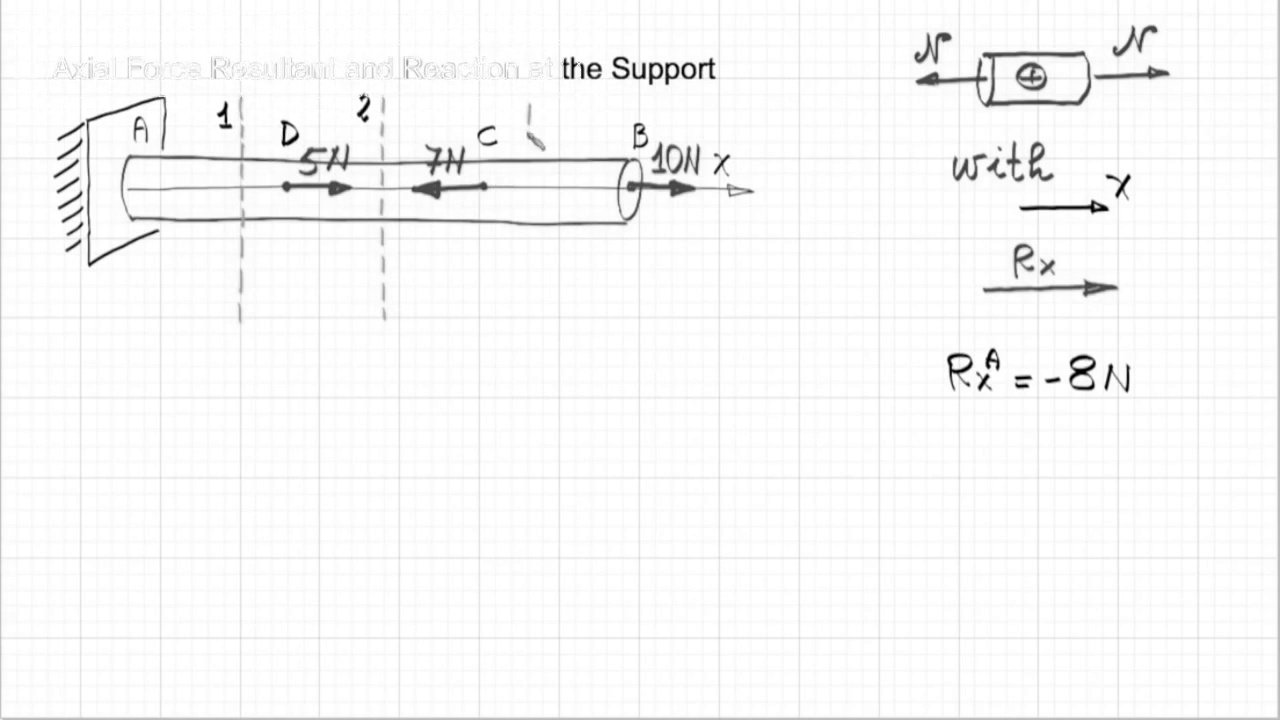 Axial Force Resultant and Reaction at the Support
N N
1 2
A D C B
5N 7N 10N x
with
x
Rx
RxA = -8N